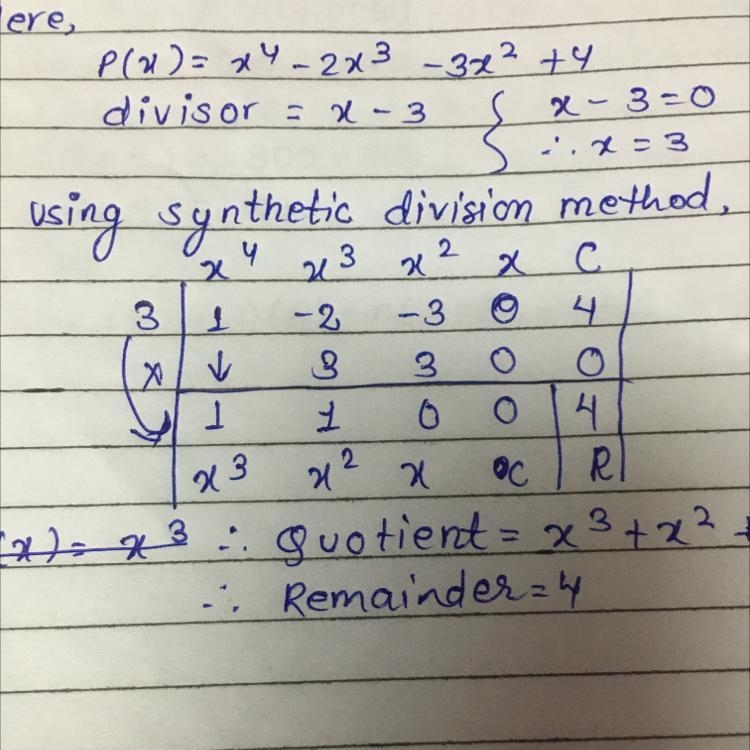 ere,
P(x) = x⁴ - 2x³ - 3x² + 4
divisor = x - 3 { x - 3 = 0
∴ x = 3
using synthetic division method,
x⁴ x³ x² x C
3 1 -2 -3 0 4
x ↓ 3 3 0 0
1 1 0 0 4
x³ x² x C R
(x) = x³ ∴ Quotient = x³ + x² +
∴ Remainder = 4